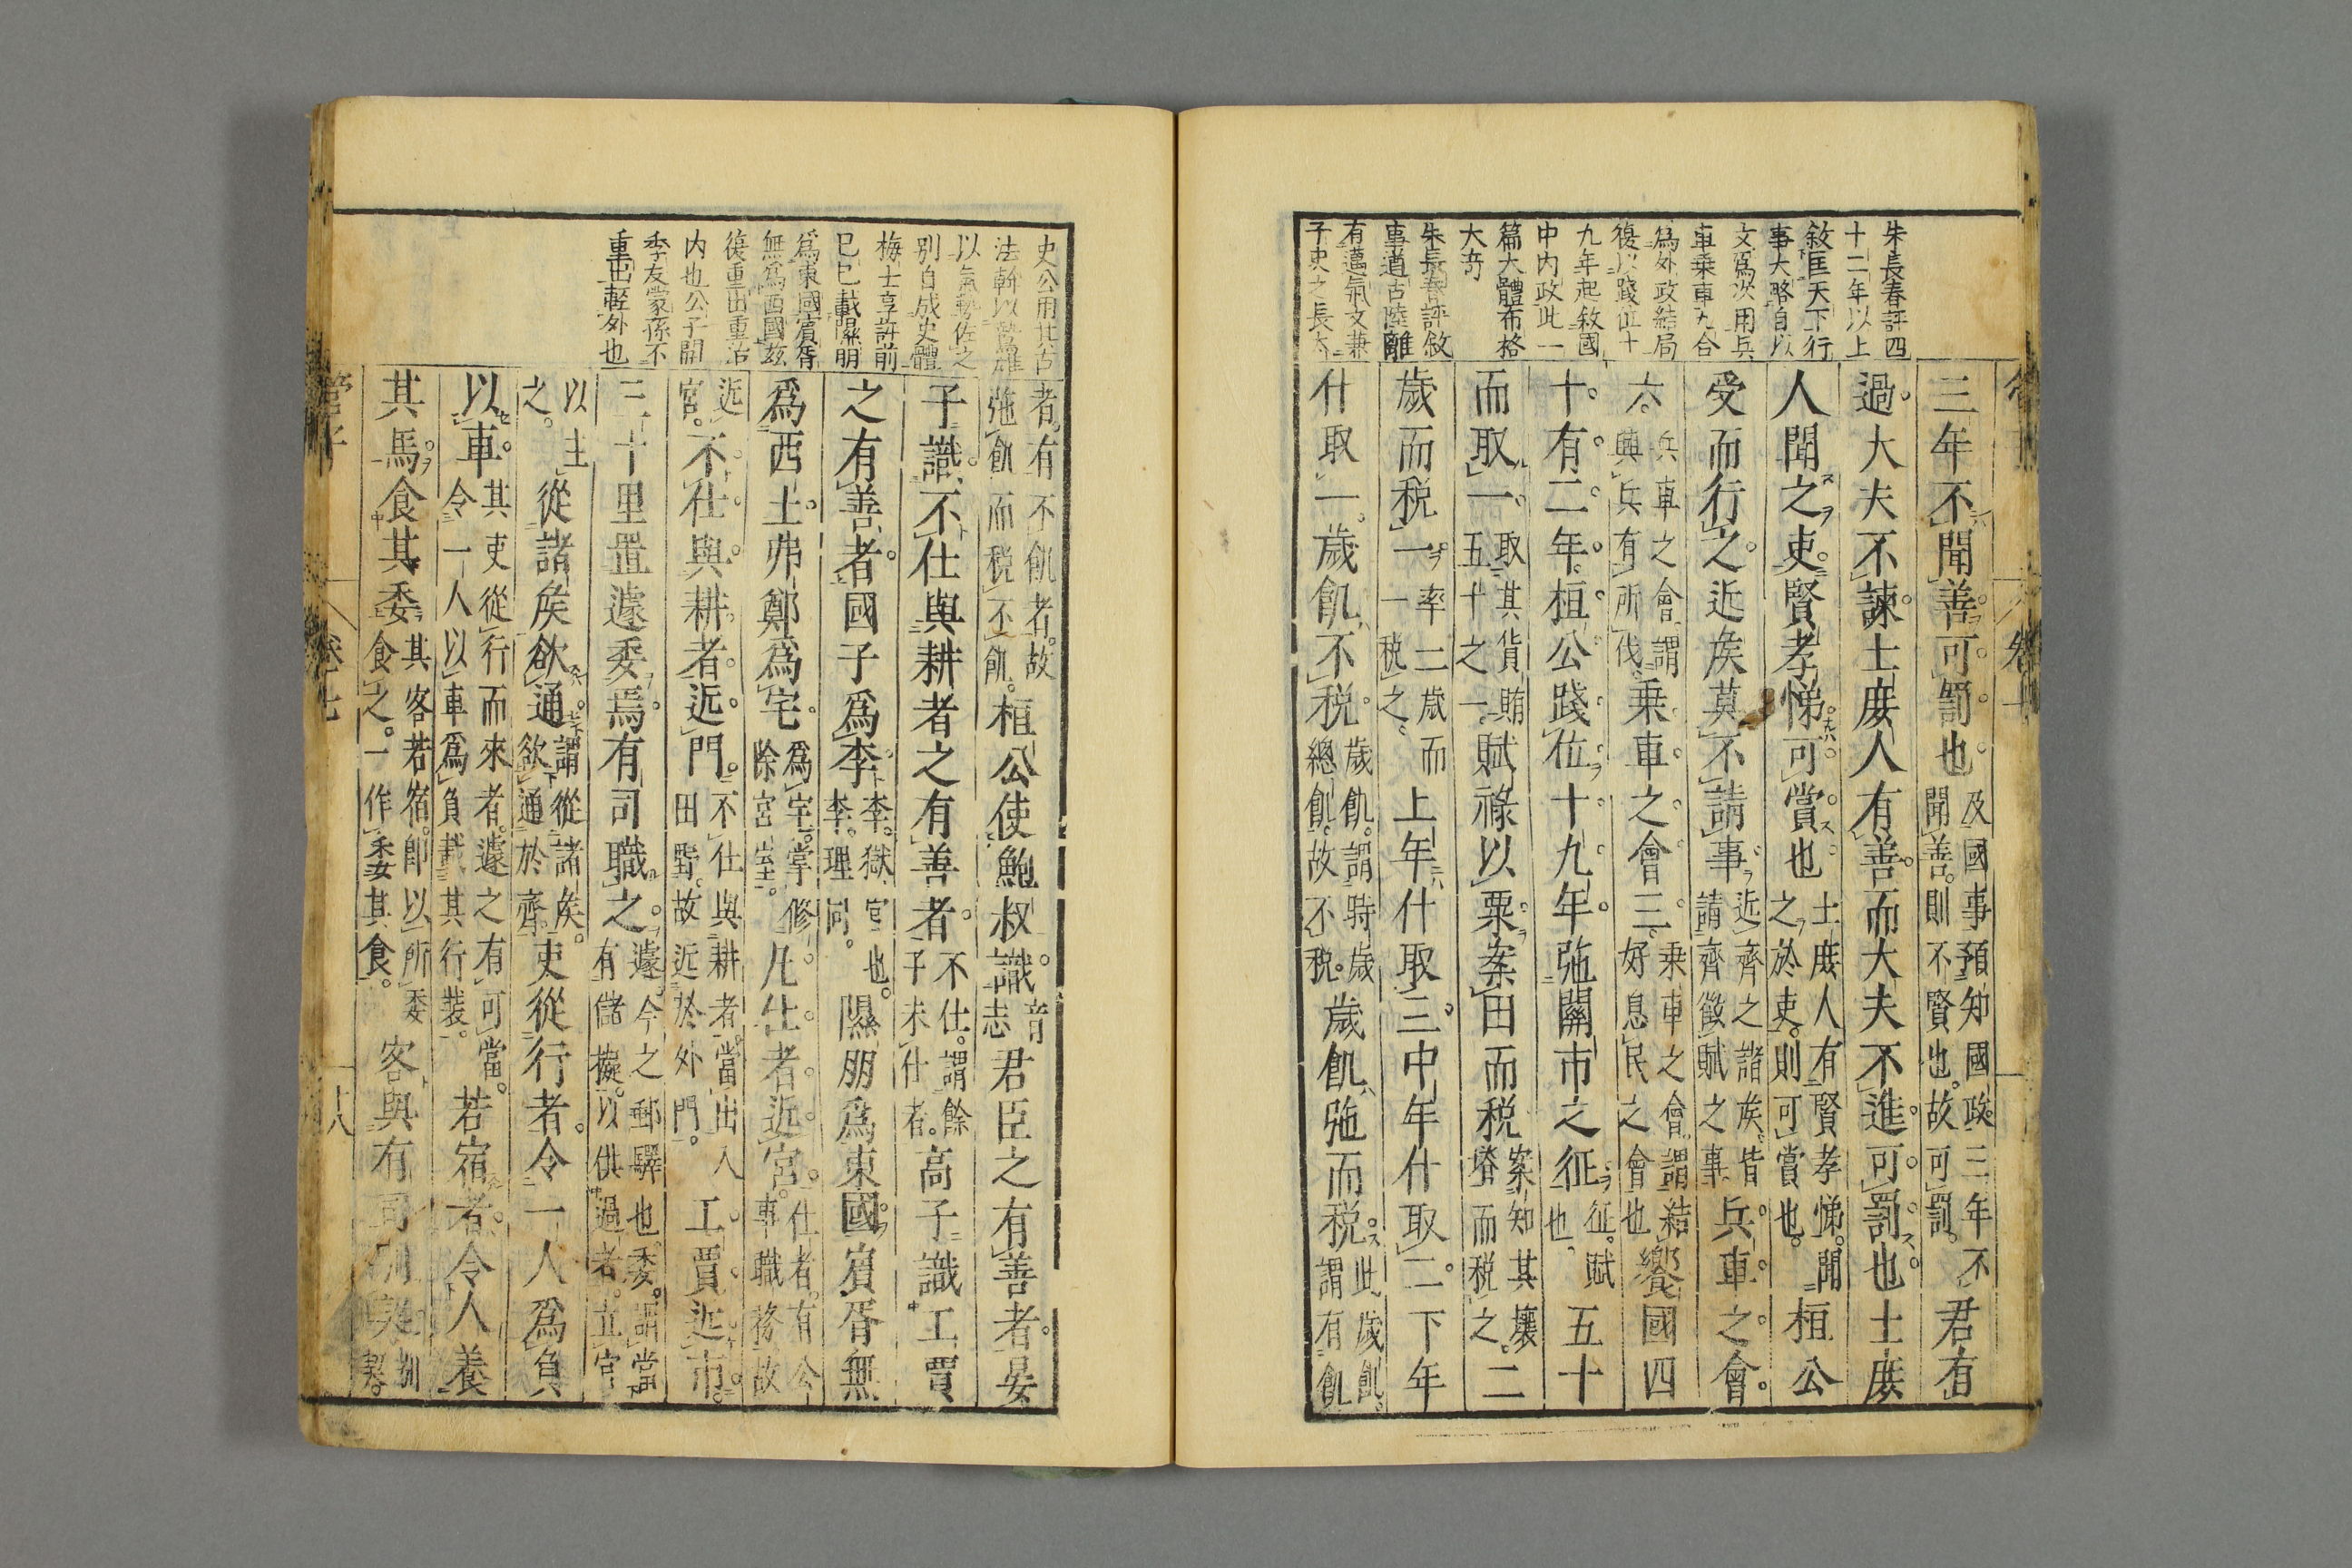 朱長春評四
十二年以上
敘匡天下行
事大略自以
文爲次用兵
車乗車九合
爲外政結局
復以踐位十
九年起敘國
中内政此一
篇大體布格
大奇
朱長春評敘
事道古陸離
有邁氣文兼
子史之長大
三年不聞善可罰也
及國事預知國政三年不
聞善則不賢也故可罰
君有
過大夫不諫士庻人有善而大夫不進可罰也士庻
人聞之吏賢孝悌可賞也
士庻人有賢孝悌聞
之於吏則可賞也
桓公
受而行之近矦莫不請事
近齊之諸矦皆
請齊徵賦之事
兵車之會
六
兵車之會謂
興兵有所伐
乗車之會三
乗車之會謂結
好息民之會也
饗國四
十有二年桓公踐位十九年弛關市之征
征賦
也
五十
而取一
取其貨賄
五十之一
賦祿以粟案田而税
案知其壤
塉而税之
二
歲而税一
率二歲而
一税之
上年什取三中年什取二下年
什取一歲飢不税
歲飢謂時歲
總飢故不税
歲飢弛而税
此歲飢
謂有飢
史公用其古
法幹以鷙雄
以氣勢佐之
別自成史體
梅士享評前
巳巳載隰朋
爲東國賓胥
無爲西國兹
復重出重治
内也公子開
季友蒙孫不
重出輕外也
者有不飢者故
弛飢而税不飢
桓公使鮑叔識
音
志
君臣之有善者晏
子識不仕與耕者之有善者
不仕謂餘
子未仕者
高子識工賈
之有善者國子爲李
李獄官也
李理同
隰朋爲東國賓胥無
爲西土弗鄭爲宅
爲宅掌修
除宮室
凡仕者近宮
仕者有公
事職務故
近
宮
不仕與耕者近門
不仕與耕者當出入
田野故近於外門
工賈近市
三十里置遽委焉有司職之
遽今之郵驛也委謂當
有儲擬以供過者立官
以主
之
從諸矦欲通
謂從諸矦
欲通於齊
吏從行者令一人爲負
以車
其吏從行而來者遽之有可當
令一人以車爲負載其行裝
若宿者令人養
其馬食其委
其客若宿卽以所委
食之一作委其食
客與有司別契
別
契
管子
卷七
十八